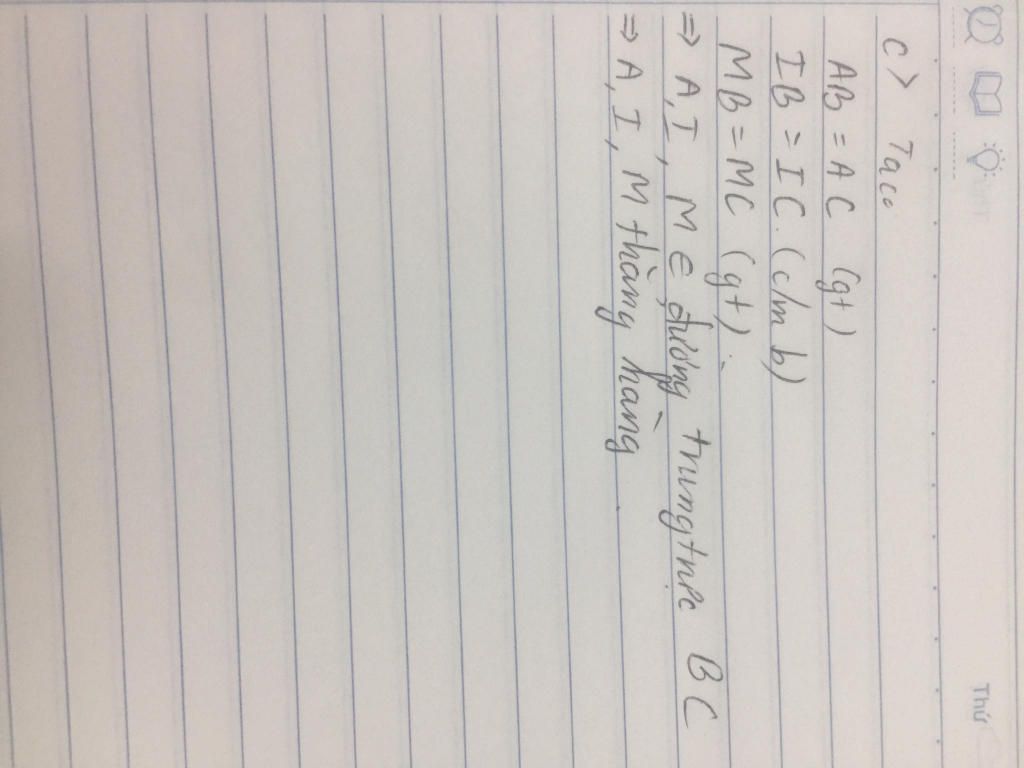 Thứ
c> Ta có
AB = AC (gt)
IB = IC. (c/m b)
MB = MC (gt).
=> A, I, M ∈ đường trung trực BC
=> A, I, M thẳng hàng